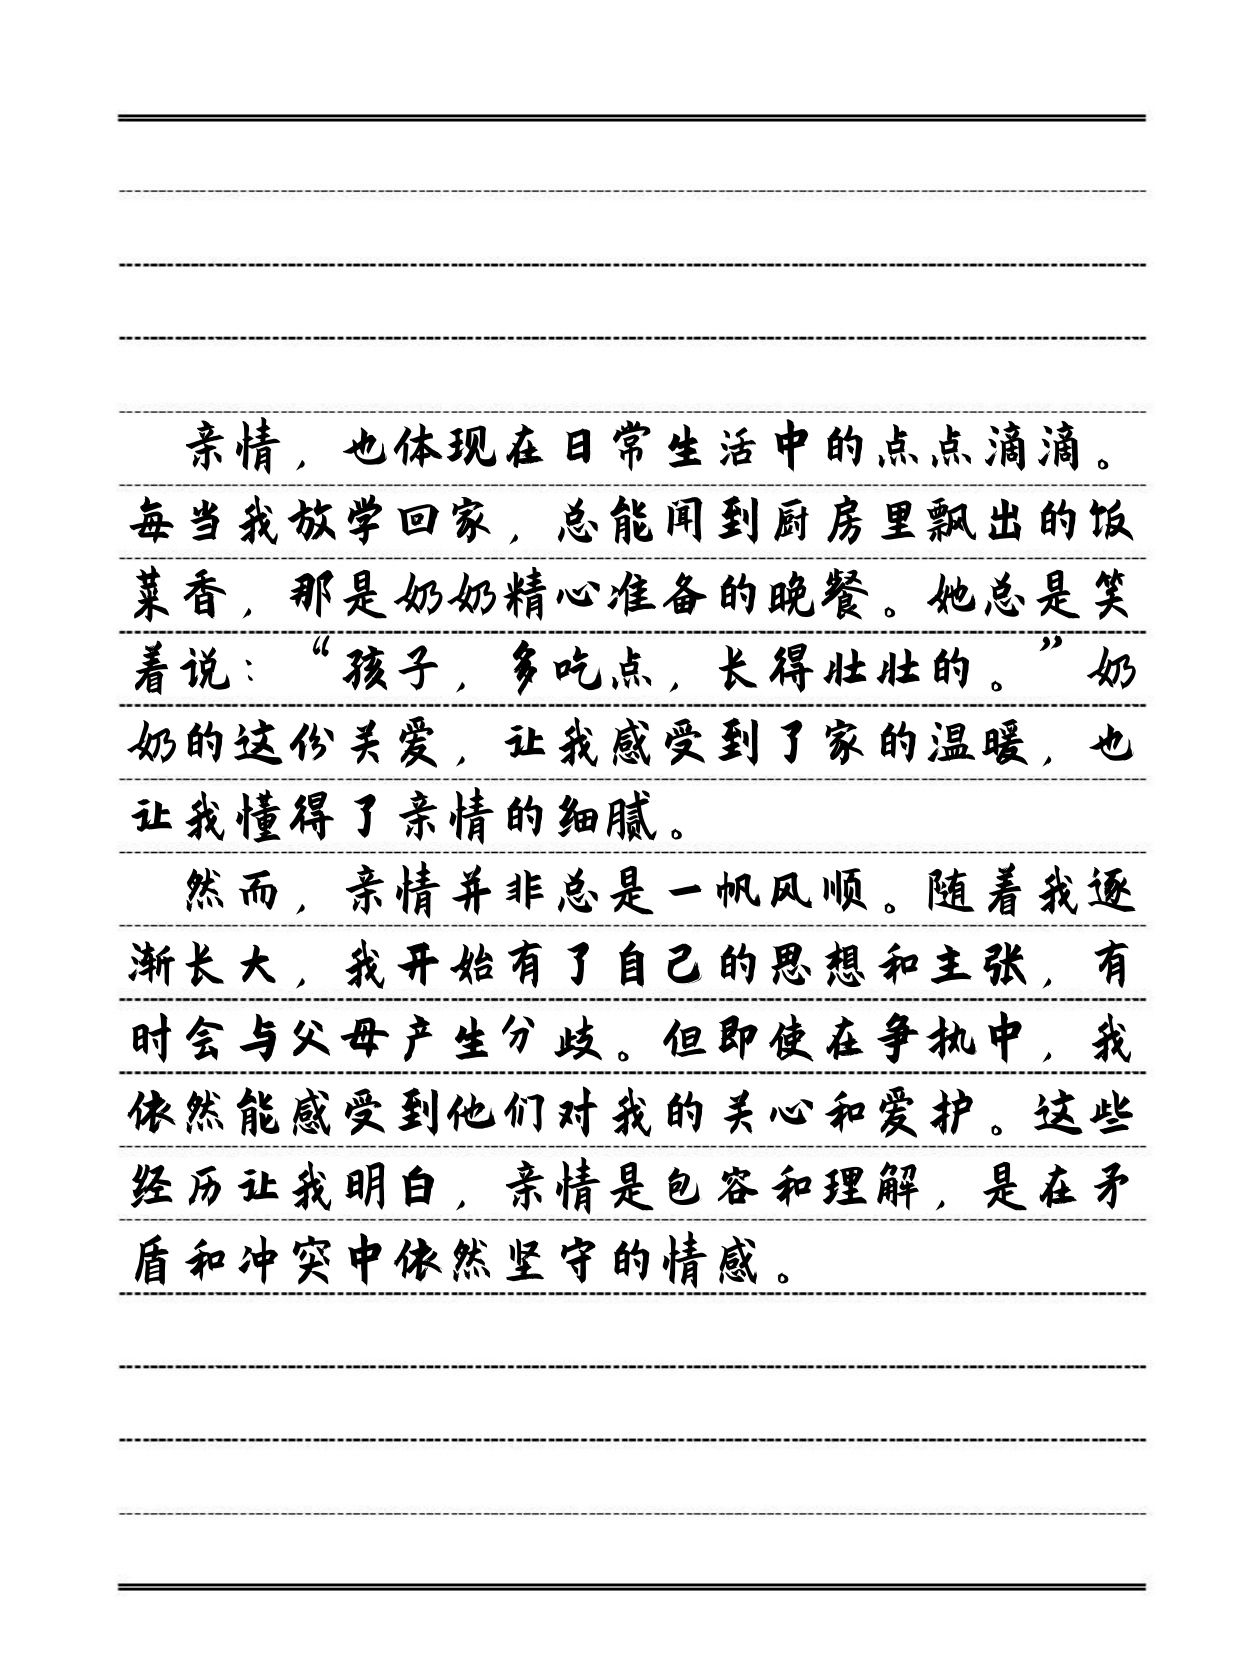 亲情，也体现在日常生活中的点点滴滴。
每当我放学回家，总能闻到厨房里飘出的饭
菜香，那是奶奶精心准备的晚餐。她总是笑
着说：“孩子，多吃点，长得壮壮的。”奶
奶的这份关爱，让我感受到了家的温暖，也
让我懂得了亲情的细腻。
然而，亲情并非总是一帆风顺。随着我逐
渐长大，我开始有了自己的思想和主张，有
时会与父母产生分歧。但即使在争执中，我
依然能感受到他们对我的关心和爱护。这些
经历让我明白，亲情是包容和理解，是在矛
盾和冲突中依然坚守的情感。